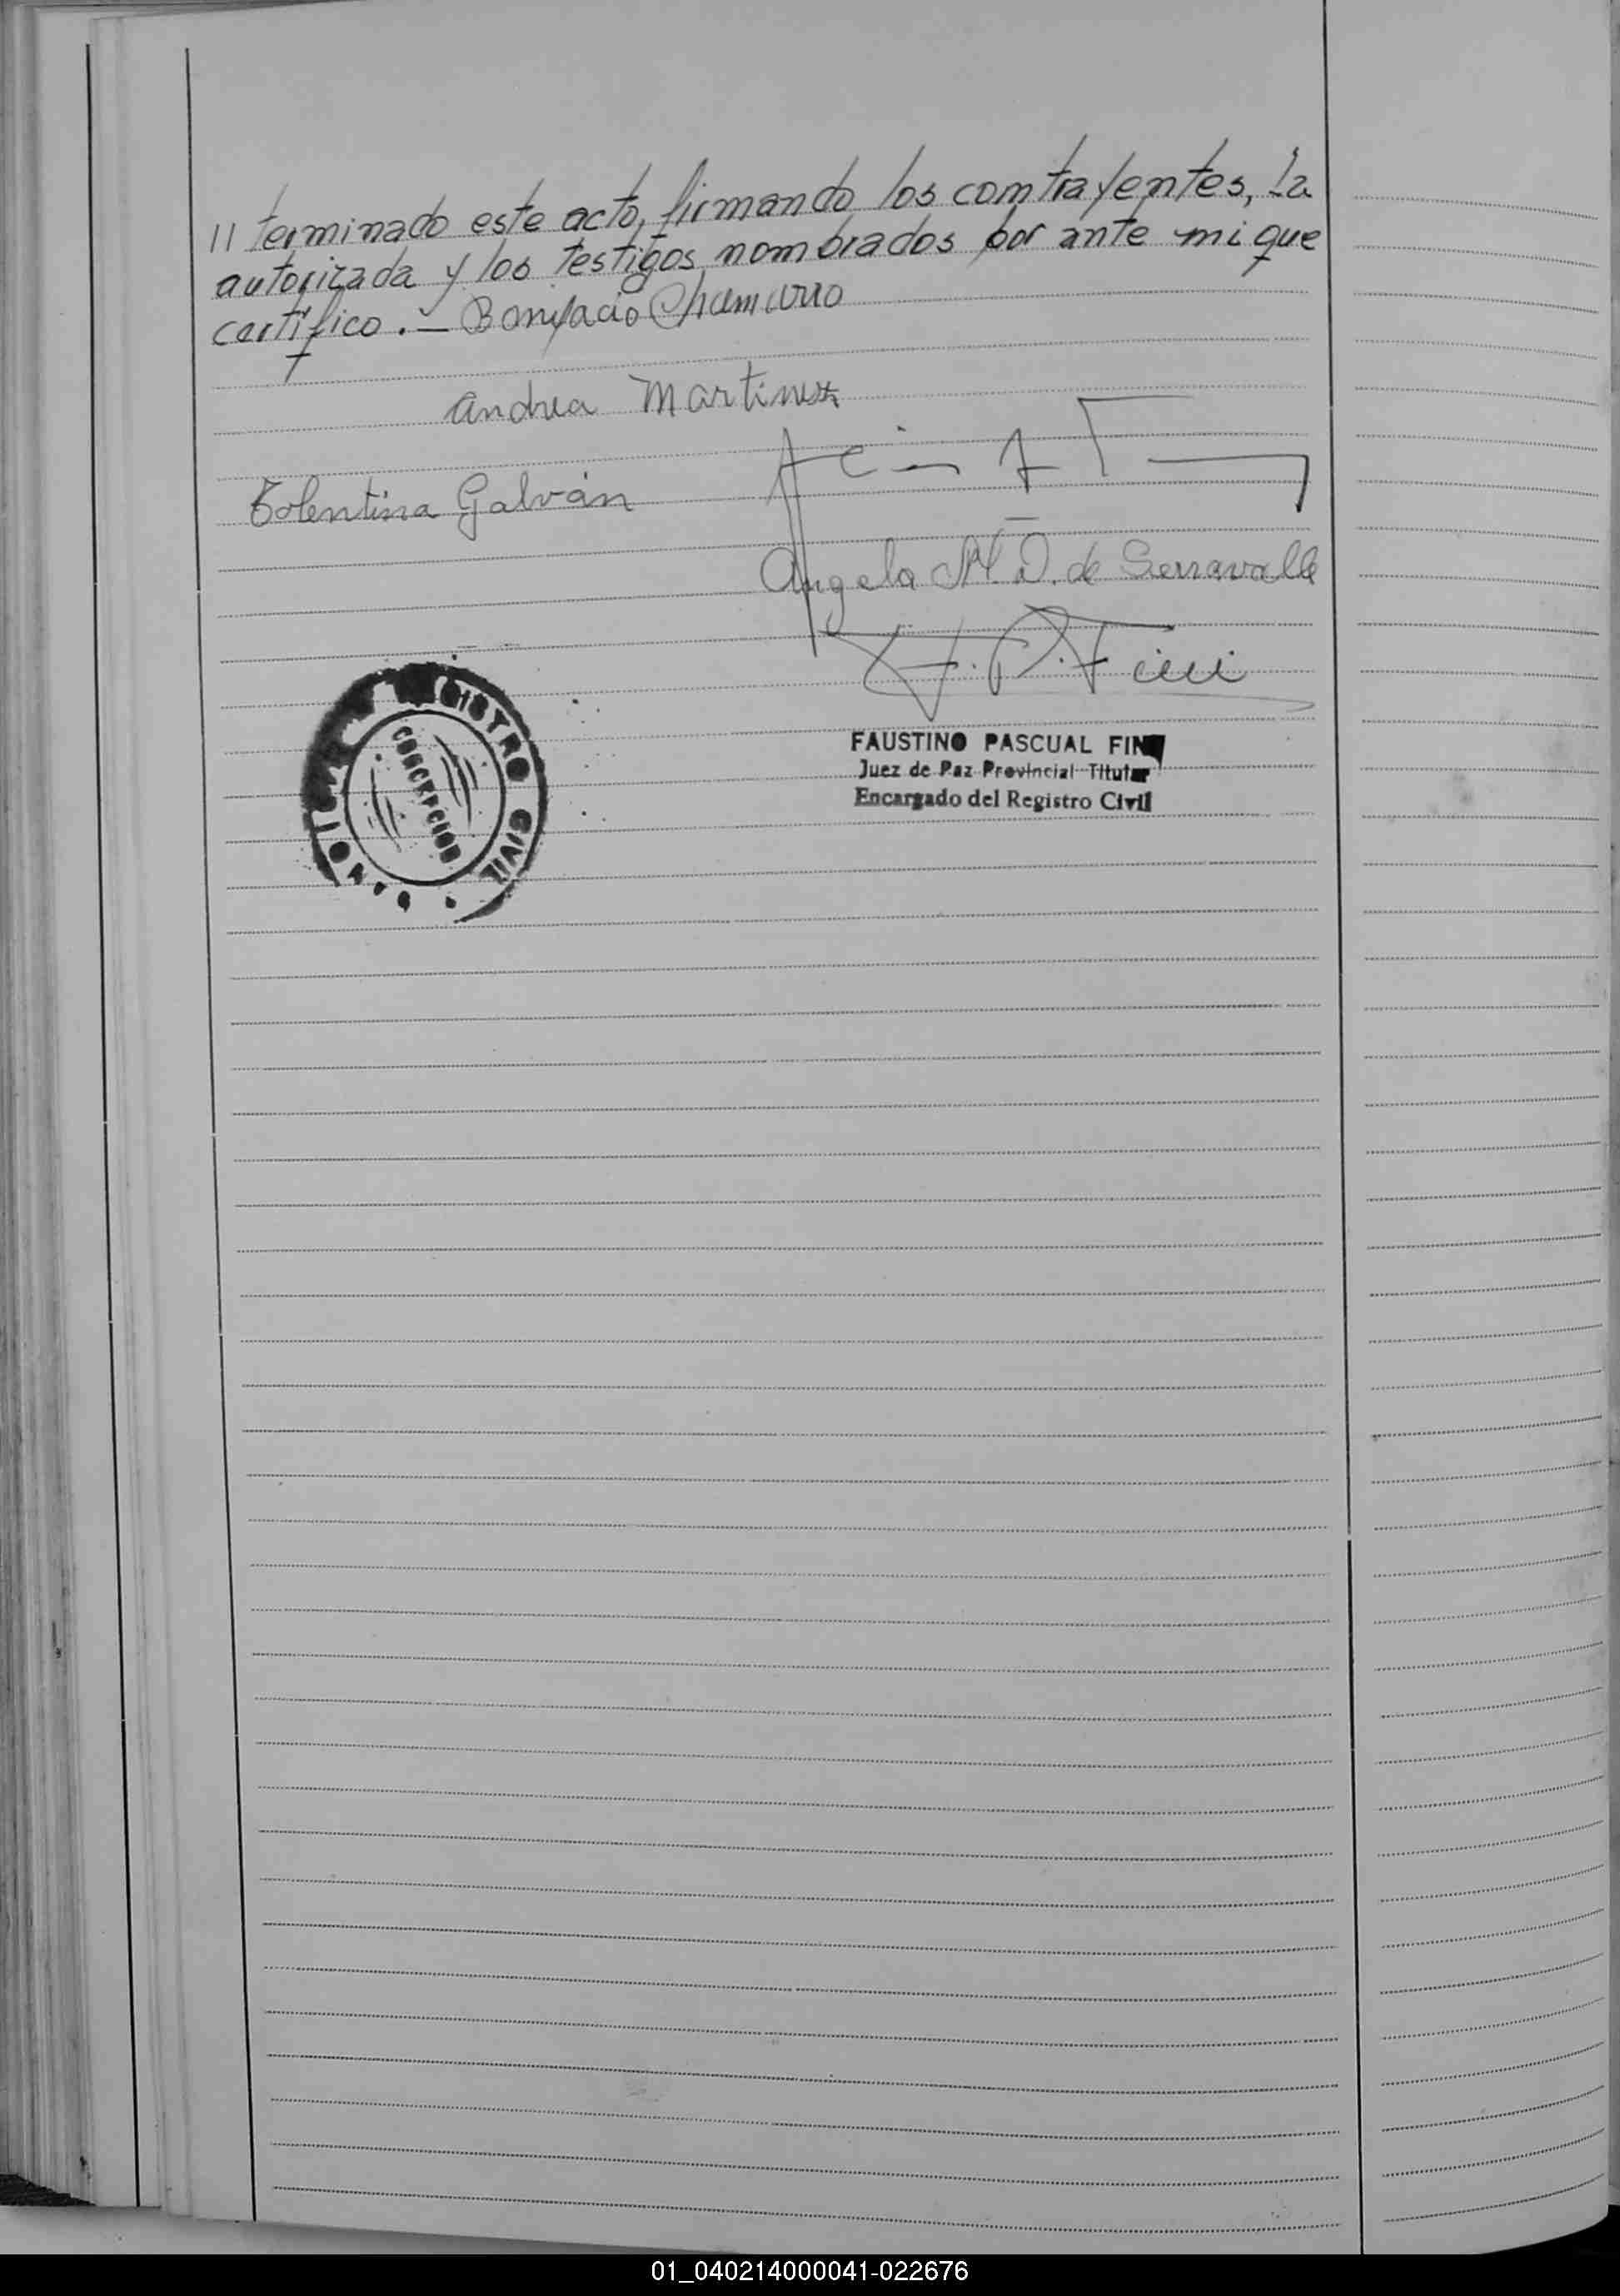 // terminado este acto, firmando los contrayentes, la
autorizada y los testigos nombrados por ante mi que
certifico. — Bonifacio Chamorro
Andrea Martinez
Tolentina Galván
Angela M. D. de Serravalle
F. P. Fini
REGISTRO CIVIL
CONCEPCION
FAUSTINO PASCUAL FINI
Juez de Paz Provincial Titular
Encargado del Registro Civil
01_040214000041-022676